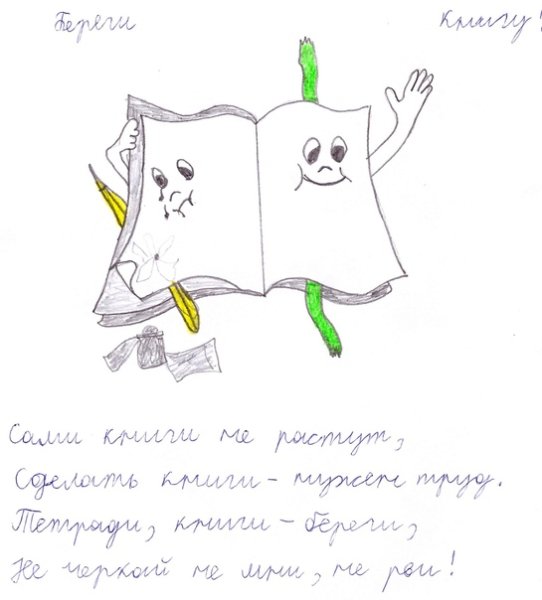 Береги Книгу!
Сами книги не растут,
Сделать книги - нужен труд.
Тетради, книги - береги,
Не черкай не мни, не рви!